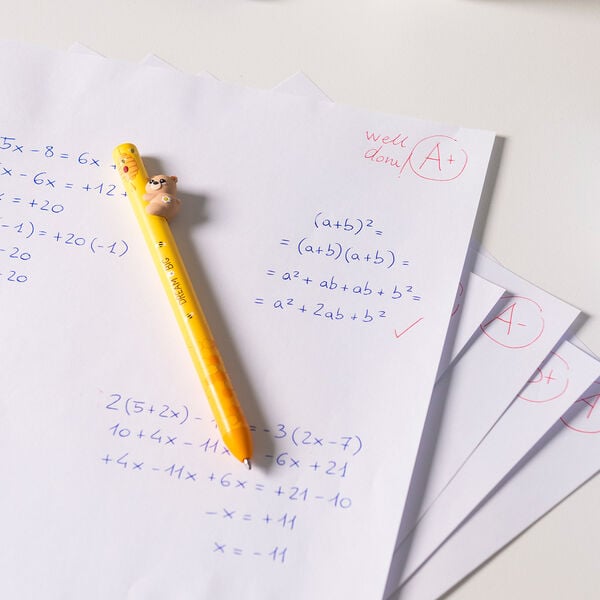 well
done! A+
5x - 8 = 6x +
x - 6x = +12 +
x = +20
-1) = +20 (-1)
-20
-20
(a+b)² =
= (a+b)(a+b) =
= a² + ab + ab + b² =
= a² + 2ab + b² ✓
DREAM BIG
2(5+2x) - = -3(2x-7)
10 + 4x - 11x -6x + 21
+4x - 11x + 6x = +21 - 10
-x = +11
x = -11
A-
A